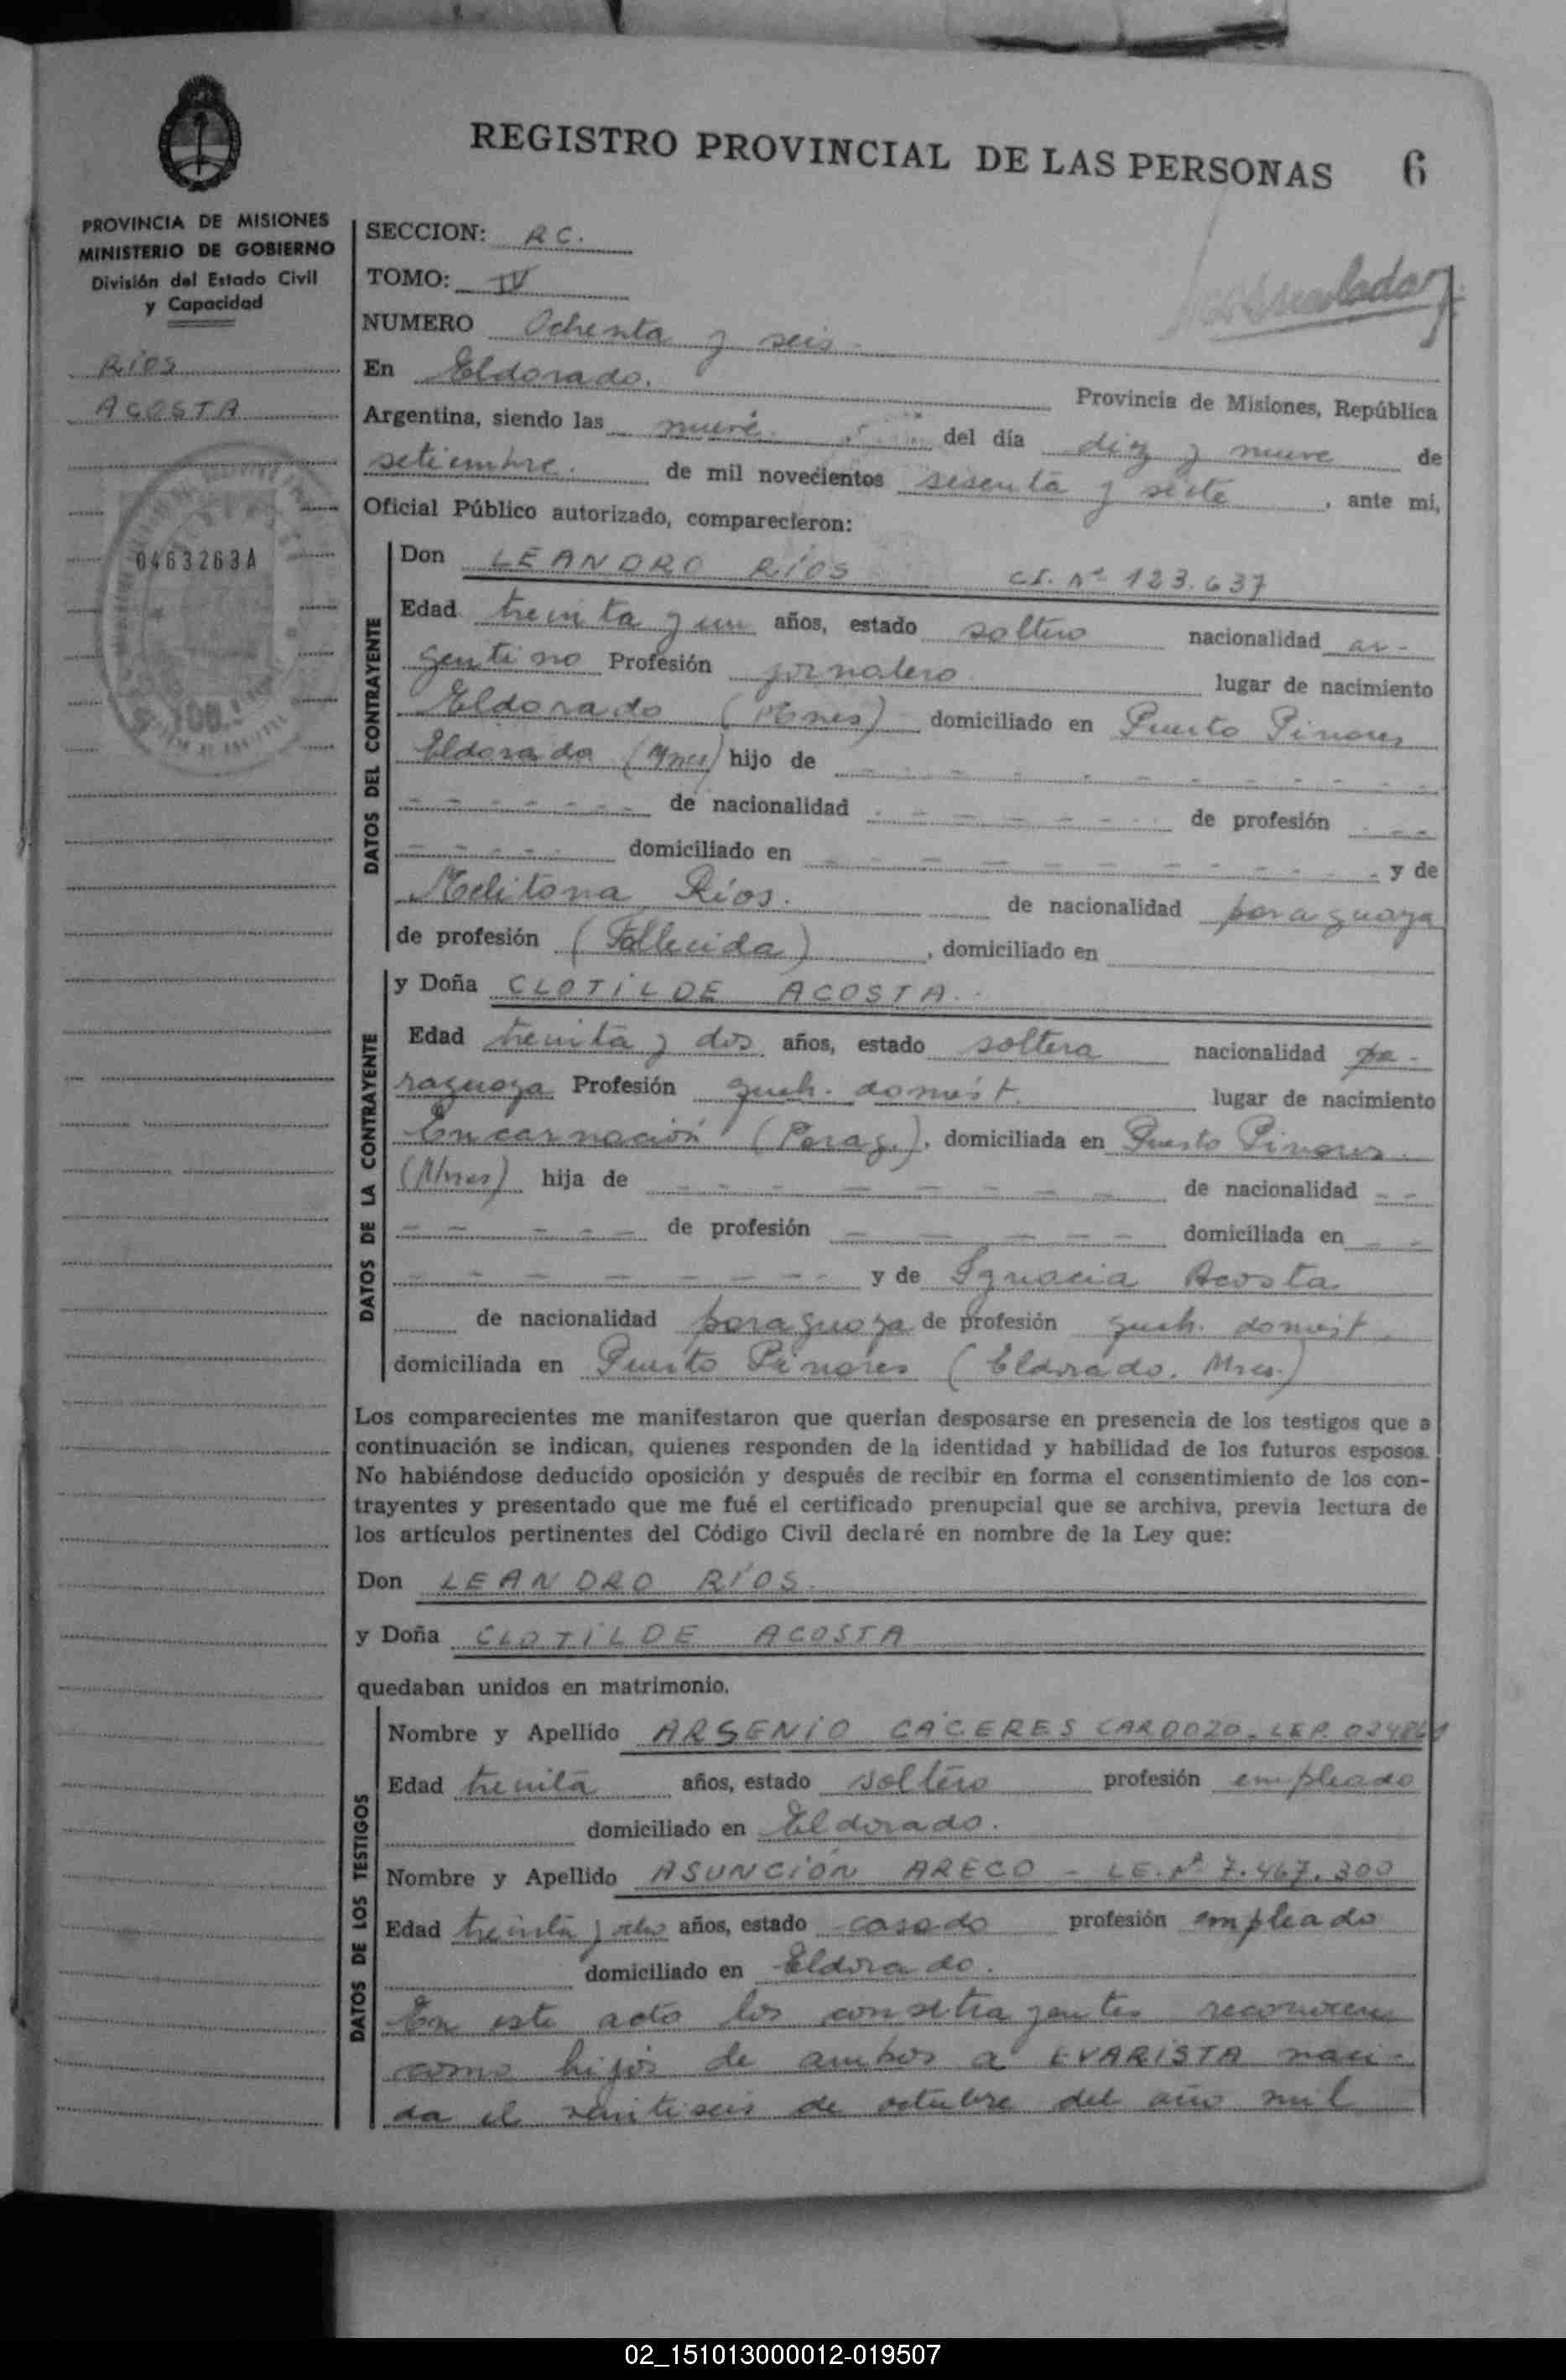 REGISTRO PROVINCIAL DE LAS PERSONAS 6
PROVINCIA DE MISIONES
MINISTERIO DE GOBIERNO
División del Estado Civil
y Capacidad
RÍOS
ACOSTA
0463263A
SECCION: RC.
TOMO: IV
NUMERO Ochenta y seis
En Eldorado. Provincia de Misiones, República
Argentina, siendo las nueve del día diez y nueve de
setiembre. de mil novecientos sesenta y siete, ante mi,
Oficial Público autorizado, comparecieron:
DATOS DEL CONTRAYENTE
Don LEANDRO RÍOS C.I. Nº 123.637
Edad treinta y un años, estado soltero nacionalidad ar-
gentino Profesión jornalero lugar de nacimiento
Eldorado (Mnes) domiciliado en Puerto Pinares
Eldorado (Mnes) hijo de - - - - - - - - -
- - - - - - - de nacionalidad - - - - - - de profesión - - -
- - - - - - domiciliado en - - - - - - - - - - y de
Melitona Ríos. de nacionalidad paraguaya
de profesión (Fallecida), domiciliado en
DATOS DE LA CONTRAYENTE
y Doña CLOTILDE ACOSTA.
Edad treinta y dos años, estado soltera nacionalidad pa-
raguaya Profesión queh. domést. lugar de nacimiento
Encarnación (Parag.), domiciliada en Puerto Pinares
(Mnes) hija de - - - - - - - - de nacionalidad - -
- - - - - - de profesión - - - - - domiciliada en - -
- - - - - - - - y de Ignacia Acosta
de nacionalidad paraguaya de profesión queh. domést.
domiciliada en Puerto Pinares (Eldorado. Mnes.)
Los comparecientes me manifestaron que querían desposarse en presencia de los testigos que a
continuación se indican, quienes responden de la identidad y habilidad de los futuros esposos.
No habiéndose deducido oposición y después de recibir en forma el consentimiento de los con-
trayentes y presentado que me fué el certificado prenupcial que se archiva, previa lectura de
los artículos pertinentes del Código Civil declaré en nombre de la Ley que:
Don LEANDRO RÍOS.
y Doña CLOTILDE ACOSTA
quedaban unidos en matrimonio.
DATOS DE LOS TESTIGOS
Nombre y Apellido ARSENIO CÁCERES CARDOZO.
Edad treinta años, estado soltero profesión empleado
domiciliado en Eldorado.
Nombre y Apellido ASUNCIÓN ARECO - LE. Nº 7.467.300
Edad treinta y ocho años, estado casado profesión empleado
domiciliado en Eldorado.
En este acto los contrayentes reconocen
como hijos de ambos a EVARISTA naci-
da el veintiseis de octubre del año mil
02_151013000012-019507